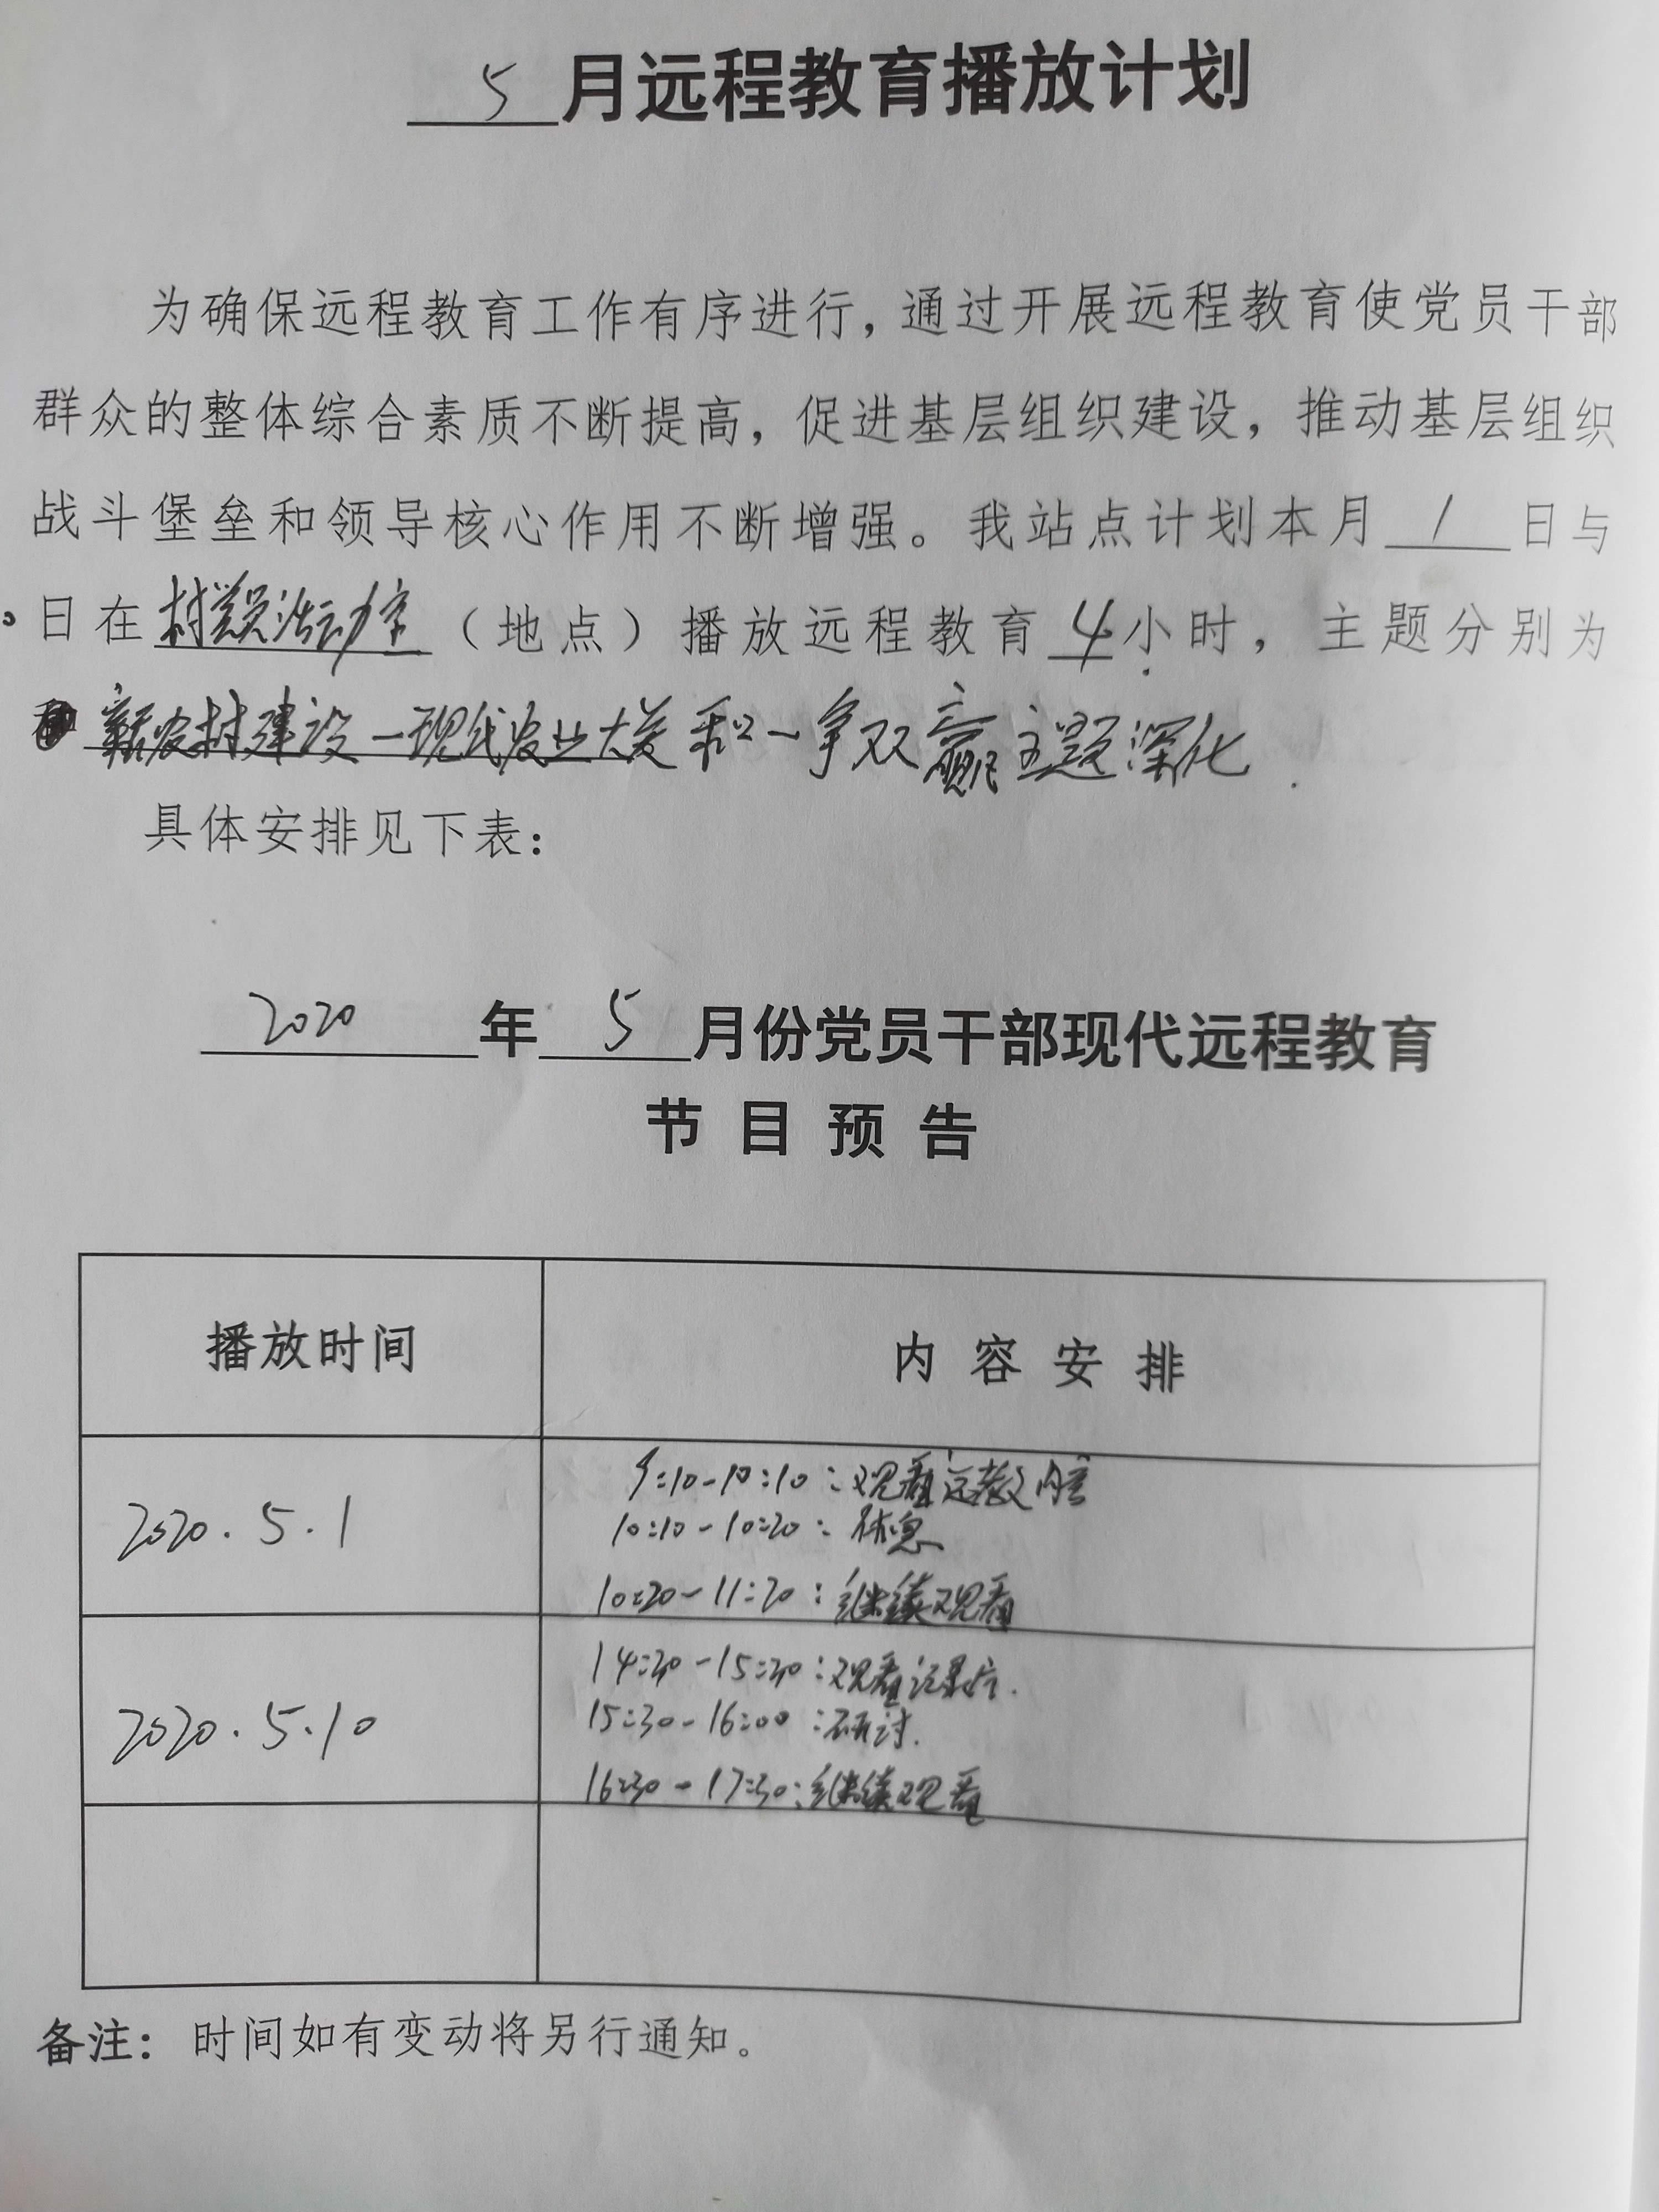 5月远程教育播放计划
为确保远程教育工作有序进行，通过开展远程教育使党员干部
群众的整体综合素质不断提高，促进基层组织建设，推动基层组织
战斗堡垒和领导核心作用不断增强。我站点计划本月1日与
日在村党员活动室（地点）播放远程教育4小时，主题分别为
新农村建设一现代农业大 和一争双赢主题深化.
具体安排见下表：
2020年5月份党员干部现代远程教育
节目预告
播放时间 内容安排
2020.5.1
9:10-10:10：观看远教内容
10:10-10:20：休息
10:20-11:20：继续观看
2020.5.10
14:30-15:30：观看记录片.
15:30-16:00：研讨.
16:30-17:30：继续观看
备注：时间如有变动将另行通知。